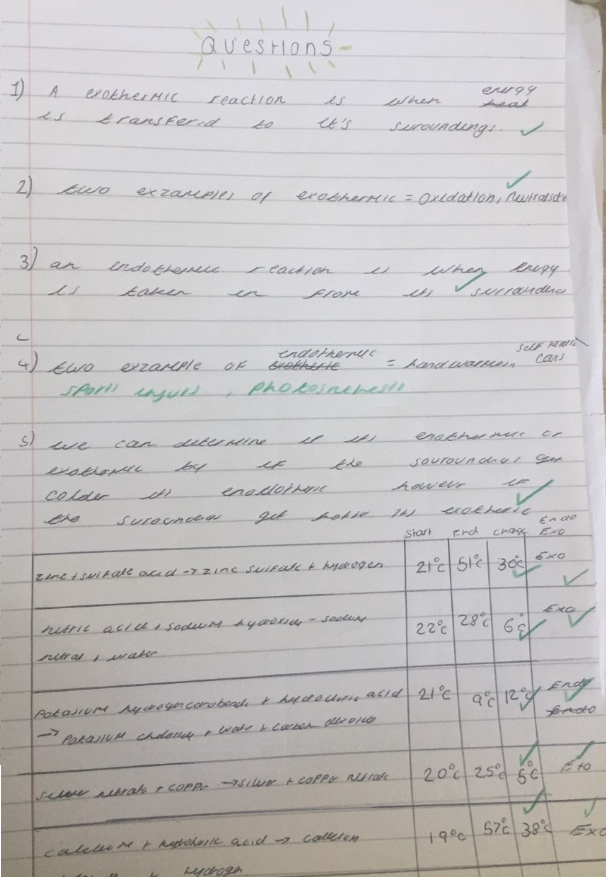 Questions
1) A exothermic reaction is when energy heat
is transferd to it's suroundings.
2) two exzamples of exothermic = Oxidation, Neutralisati
3) an endothermic reaction is when energy
is taken in from its surroundi
4) two exzample of endothermic exothermic = handwarmers, self heati cans
sports injurs, Photosinthesis
5) we can determine if its enothermic or
exothermic by if the souroundial get
colder its enodothermic however if
the suroundia get hotter its exothermic
Start End Change Endo Exo
zinc + sulfate acid → zinc sulfate + hydrogen 21°c 51°c 30°c Exo
nitric acid + sodium hydroxide - sodium 22°c 28°c 6°c Exo
nitrat + water
Potasium hydrogencarbonate + hydrochloric acid 21°c 9°c 12°c Endo Endo
→ Potasium chloride + water + carbon dioxide
silver nitrate + copper → silver + copper nitrate 20°c 25°c 5°c Exo
calcium + hydochloric acid → calcium 19°c 57°c 38°c Exo
hydrogen